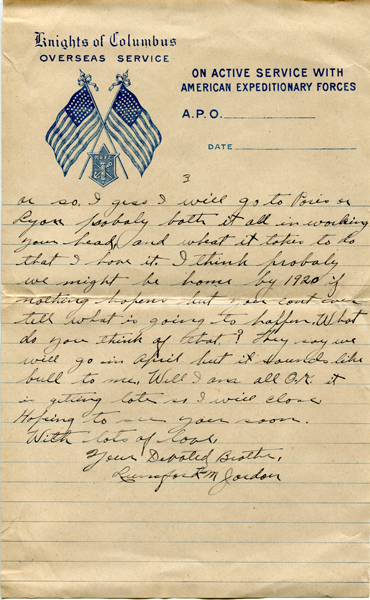 Knights of Columbus
OVERSEAS SERVICE
ON ACTIVE SERVICE WITH
AMERICAN EXPEDITIONARY FORCES
A.P.O.
DATE
3
or so. I gess I will go to Paris or
Lyon probaly both it all in working
your head, and what it takes to do
that I have it. I think probaly
we might be home by 1920 if
nothing hapens but you cont ever
tell what is going to happen. What
do you think of that? They say we
will go in April but it sounds like
bull to me. Well I am all O.K. it
is geting late so I will close
Hoping to see you soon.
With lots of love,
Your Devoted Brother,
M Jordan